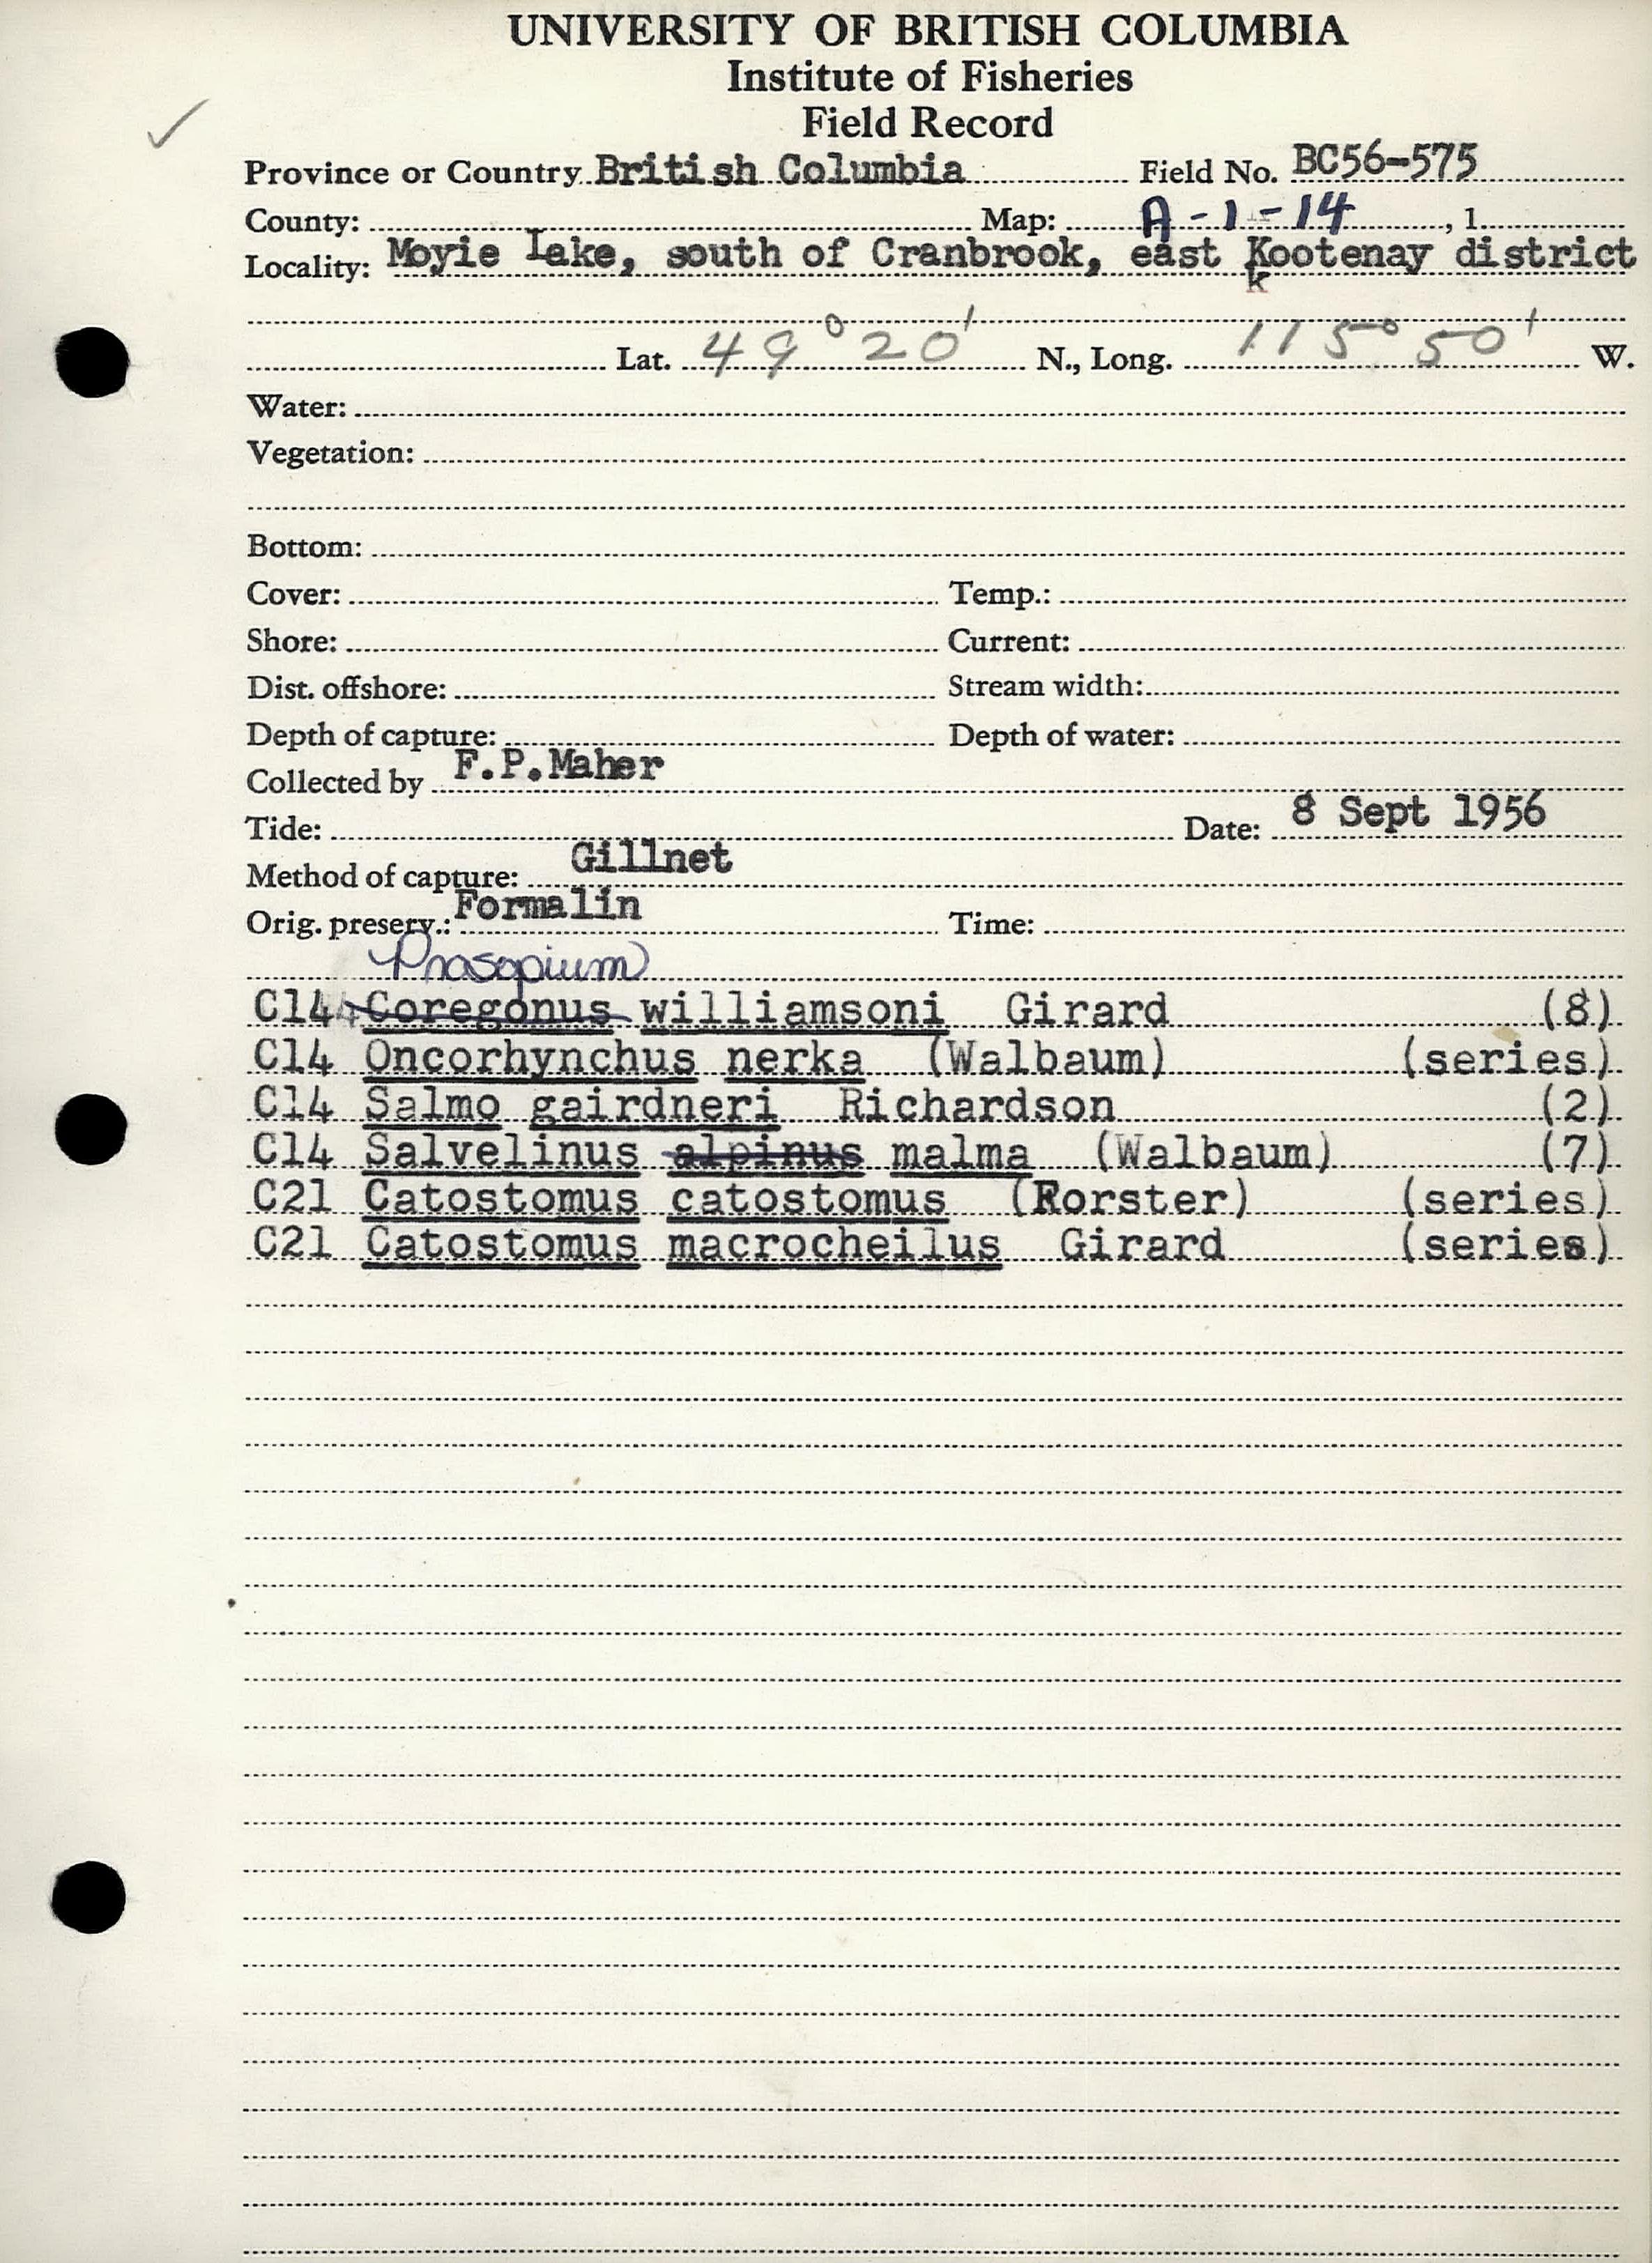 UNIVERSITY OF BRITISH COLUMBIA
Institute of Fisheries
Field Record
Province or Country British Columbia Field No. BC56-575
County: Map: A-1-14, 1
Locality: Moyie Lake, south of Cranbrook, east Kootenay district
k
Lat. 49°20' N., Long. 115°50' W.
Water:
Vegetation:
Bottom:
Cover: Temp.:
Shore: Current:
Dist. offshore: Stream width:
Depth of capture: Depth of water:
Collected by F.P.Maher
Tide: Date: 8 Sept 1956
Method of capture: Gillnet
Orig. preserv.: Formalin Time:
Prosopium
C14 Coregonus williamsoni Girard (8)
C14 Oncorhynchus nerka (Walbaum) (series)
C14 Salmo gairdneri Richardson (2)
C14 Salvelinus alpinus malma (Walbaum) (7)
C21 Catostomus catostomus (Forster) (series)
C21 Catostomus macrocheilus Girard (series)